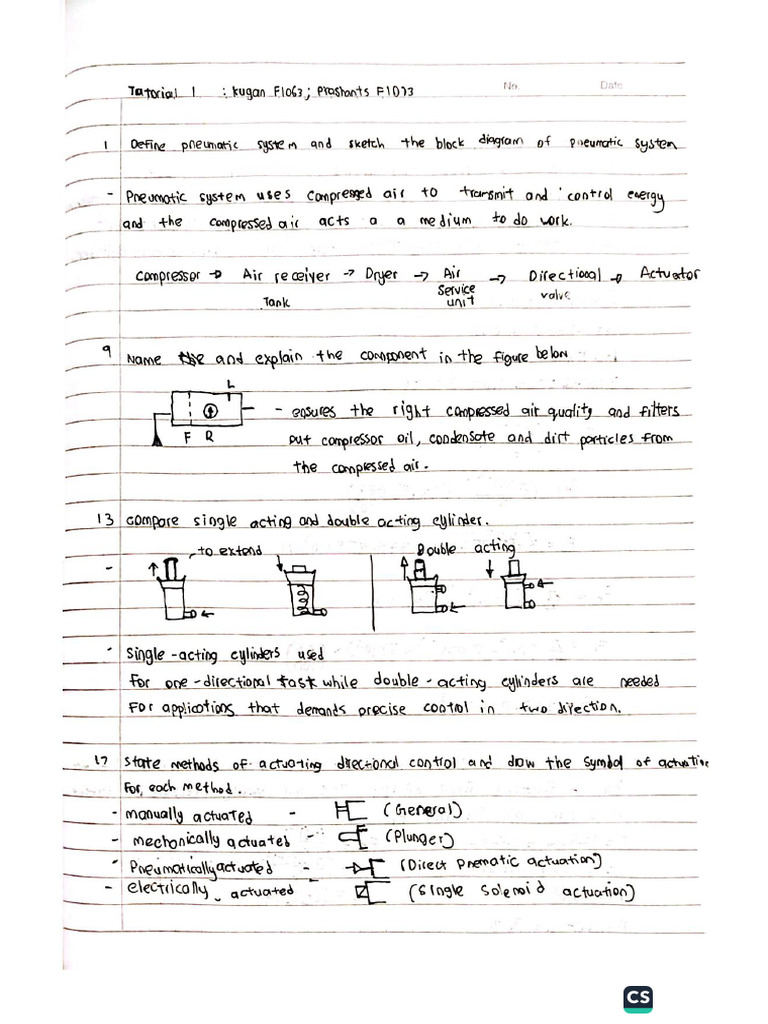 No. Date
Tutorial 1 : Kugan F1063; Prashants F1073
1 Define pneumatic system and sketch the block diagram of pneumatic system
- Pneumatic system uses compressed air to transmit and control energy
and the compressed air acts a a medium to do work.
Compressor → Air receiver → Dryer → Air → Directional → Actuator
Tank Service unit valve
9 Name the and explain the component in the figure below
L
- ensures the right compressed air quality and filters
F R out compressor oil, condensate and dirt particles from
the compressed air.
13 compare single acting and double acting cylinder.
- to extend Double acting
- Single-acting cylinders used
For one-directional task while double-acting cylinders are needed
For applications that demands precise control in two direction.
17 State methods of actuating directional control and draw the symbol of
For each method.
- manually actuated - (General)
- mechanically actuated - (Plunger)
- Pneumatically actuated - (Direct pnematic actuation)
- electrically actuated (single solenoid actuation)
CS